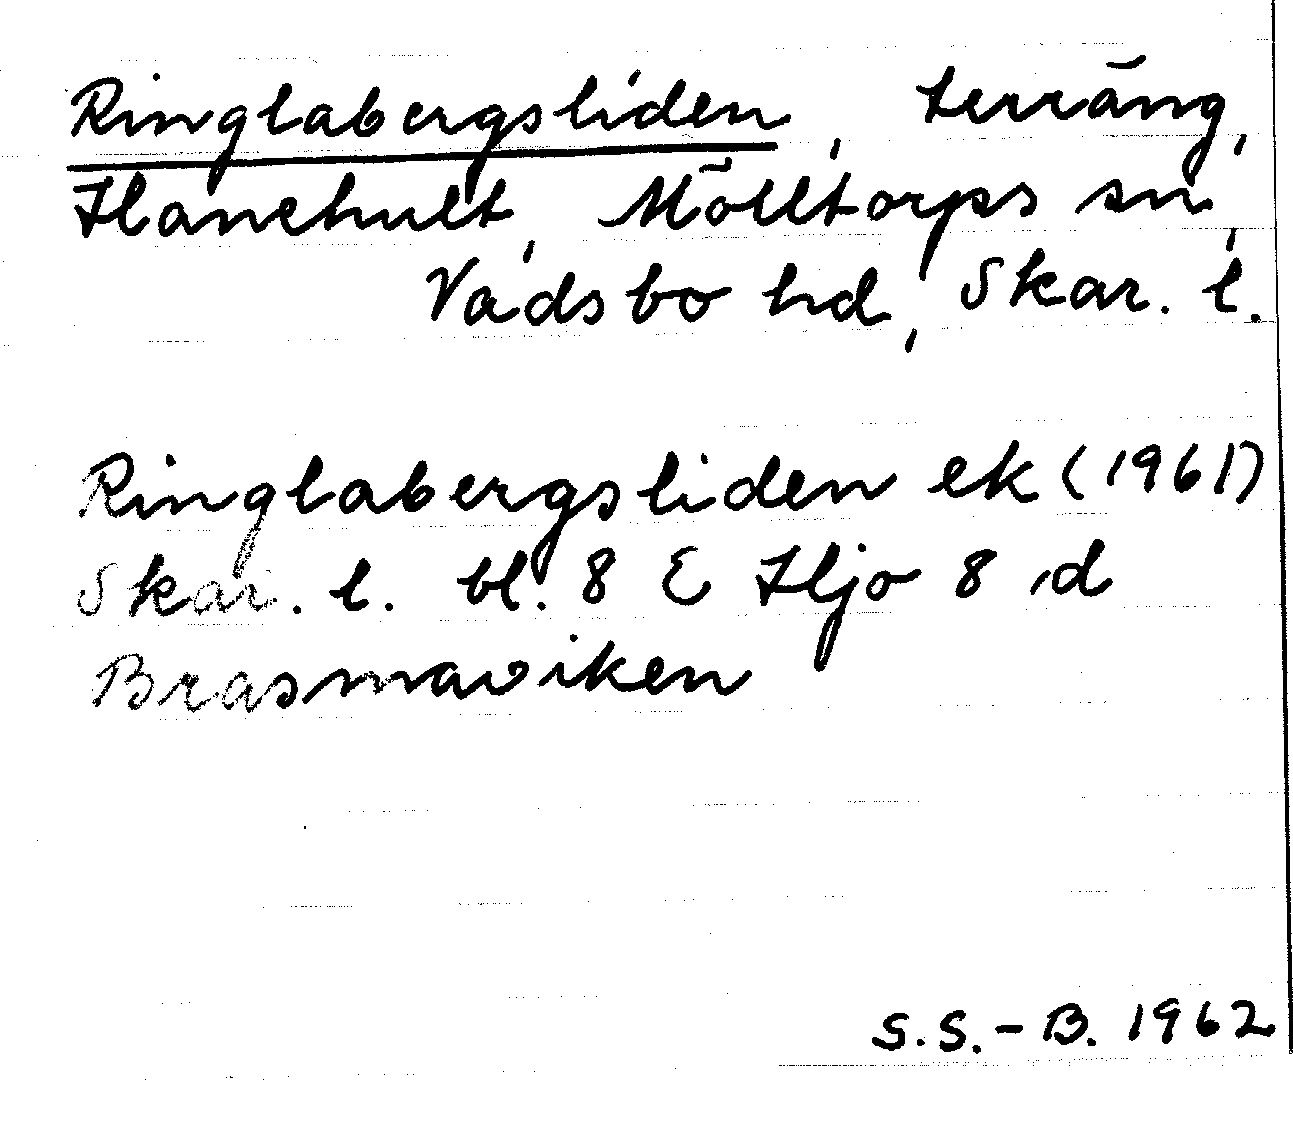 Ringlabergsliden, terräng,
Hanehult, Mölltorps sn,
Vadsbo hd, Skar. l.
Ringlabergsliden ek (1961)
Skar. l. bl. 8 E Hjo 8 d
Brasmaviken
S.S.-B. 1962